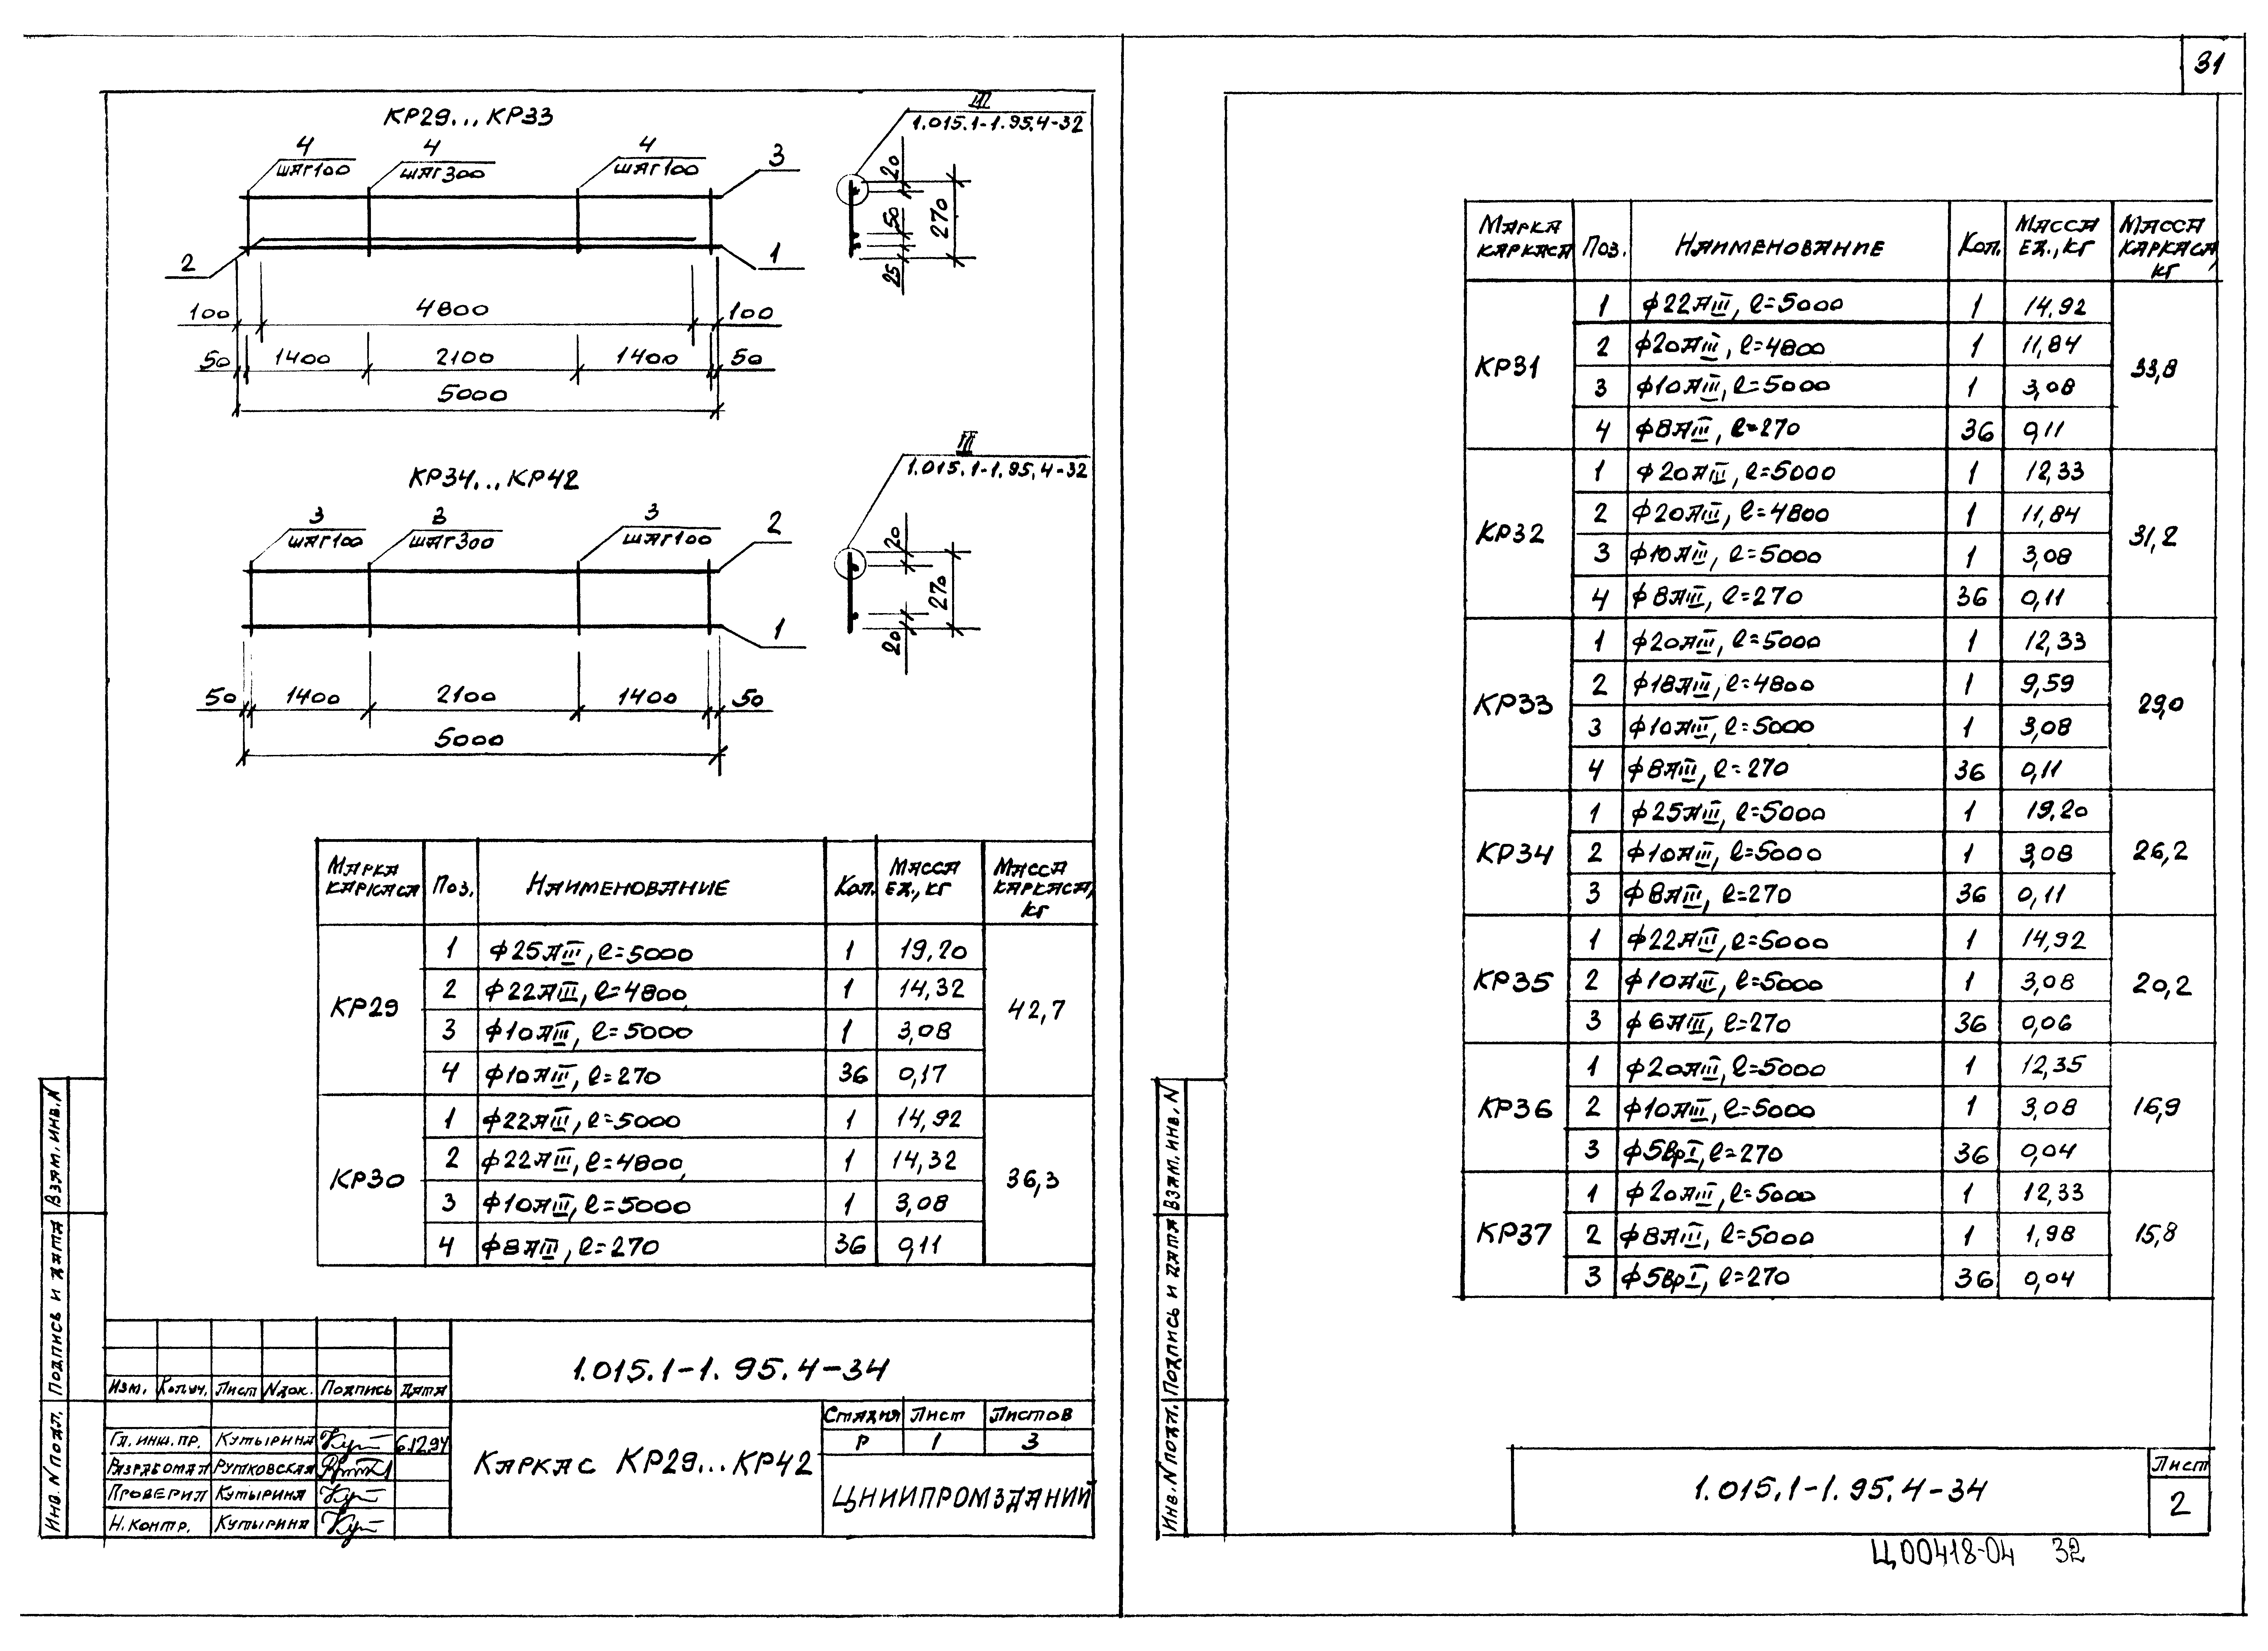 КР29...КР33
4 4 4 3
шаг100 шаг300 шаг100
2 1
100 4800 100
50 1400 2100 1400 50
5000
III
1.015.1-1.95.4-32
20
50
270
25
КР34...КР42
3 3 3 2
шаг100 шаг300 шаг100
1
50 1400 2100 1400 50
5000
III
1.015.1-1.95.4-32
20
270
20
Марка каркаса Поз. Наименование Кол. Масса ед., кг Масса каркаса, кг
КР29 42,7
1 ϕ25АIII, l=5000 1 19,20
2 ϕ22АIII, l=4800 1 14,32
3 ϕ10АIII, l=5000 1 3,08
4 ϕ10АIII, l=270 36 0,17
КР30 36,3
1 ϕ22АIII, l=5000 1 14,92
2 ϕ22АIII, l=4800 1 14,32
3 ϕ10АIII, l=5000 1 3,08
4 ϕ8АIII, l=270 36 0,11
Инв. N подл. Подпись и дата Взам. инв. N
1.015.1-1.95.4-34
Изм. Кол.уч. Лист N док. Подпись Дата
Гл. инж. пр. Кутырина 6.12.94
Разработал Рутковская
Проверил Кутырина
Н. контр. Кутырина
Каркас КР29...КР42
Стадия Лист Листов
Р 1 3
ЦНИИПРОМЗДАНИЙ
31
Марка каркаса Поз. Наименование Кол. Масса ед., кг Масса каркаса, кг
КР31 33,8
1 ϕ22АIII, l=5000 1 14,92
2 ϕ20АIII, l=4800 1 11,84
3 ϕ10АIII, l=5000 1 3,08
4 ϕ8АIII, l=270 36 0,11
КР32 31,2
1 ϕ20АIII, l=5000 1 12,33
2 ϕ20АIII, l=4800 1 11,84
3 ϕ10АIII, l=5000 1 3,08
4 ϕ8АIII, l=270 36 0,11
КР33 29,0
1 ϕ20АIII, l=5000 1 12,33
2 ϕ18АIII, l=4800 1 9,59
3 ϕ10АIII, l=5000 1 3,08
4 ϕ8АIII, l=270 36 0,11
КР34 26,2
1 ϕ25АIII, l=5000 1 19,20
2 ϕ10АIII, l=5000 1 3,08
3 ϕ8АIII, l=270 36 0,11
КР35 20,2
1 ϕ22АIII, l=5000 1 14,92
2 ϕ10АIII, l=5000 1 3,08
3 ϕ6АIII, l=270 36 0,06
КР36 16,9
1 ϕ20АIII, l=5000 1 12,35
2 ϕ10АIII, l=5000 1 3,08
3 ϕ5ВрI, l=270 36 0,04
КР37 15,8
1 ϕ20АIII, l=5000 1 12,33
2 ϕ8АIII, l=5000 1 1,98
3 ϕ5ВрI, l=270 36 0,04
Инв. N подл. Подпись и дата Взам. инв. N
1.015.1-1.95.4-34
Лист
2
Ц00418-04 32